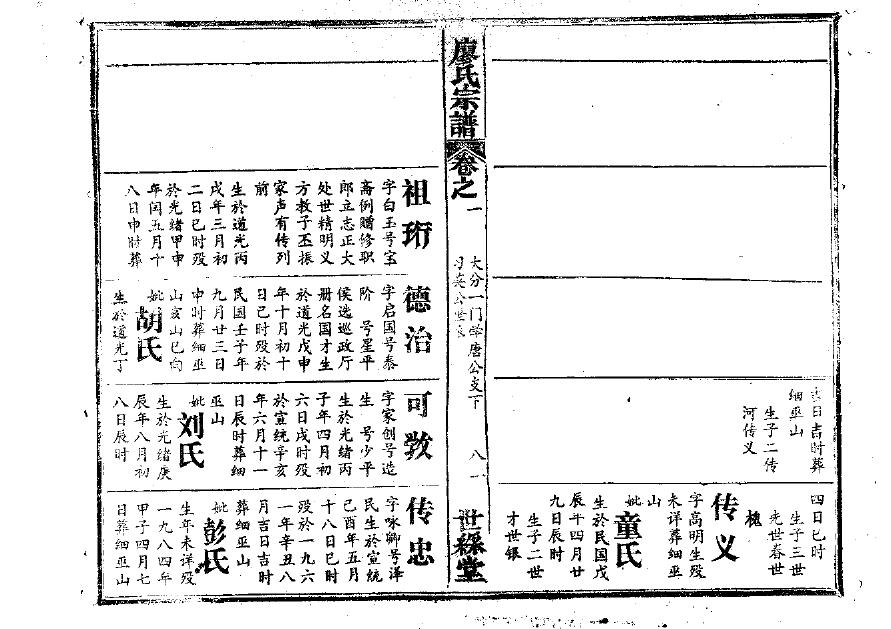 吉日吉时葬
细巫山
生子二传
河传义
四日巳时
生子三世
光世春世
槐
传义
字高明生殁
未详葬细巫
山
妣童氏
生於民国戊
辰年四月廿
九日辰时
生子二世
才世银
廖氏宗譜
卷之一
大分一门学唐公支下
八一
世綵堂
祖珩
字白玉号宝
斋例赠修职
郎立志正大
处世精明义
方教子丕振
家声有传列
前
生於道光丙
戌年三月初
二日巳时殁
於光绪甲申
年闰五月十
八日申时葬
德治
字启国号泰
阶 号星平
侯选巡政厅
册名国才生
於道光戊申
年十月初十
日巳时殁於
民国壬子年
九月廿三日
申时葬细巫
山亥山巳向
妣胡氏
生於道光丁
可敩
字家创号造
生 号少平
生於光绪丙
子年四月初
六日戌时殁
於宣统辛亥
年六月十一
日辰时葬细
巫山
妣刘氏
生於光绪庚
辰年八月初
八日辰时
传忠
字咏卿号泽
民生於宣统
己酉年五月
十八日巳时
殁於一九六
一年辛丑八
月吉日吉时
葬细巫山
妣彭氏
生年未详殁
一九八四年
甲子四月七
日葬细巫山